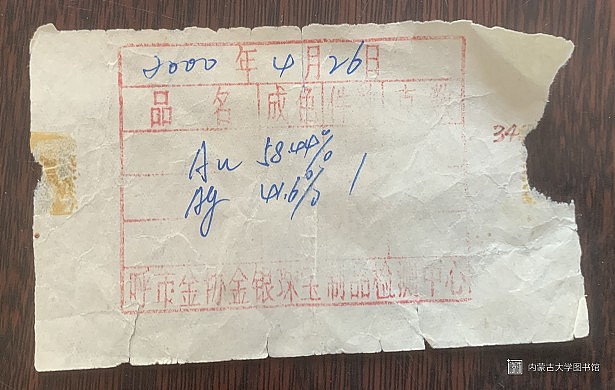 2000年4月26日
品名 成色 件
34
Au 58.44%
Ag 41.6% 1
呼市金协金银珠宝制品检测中心
内蒙古大学图书馆